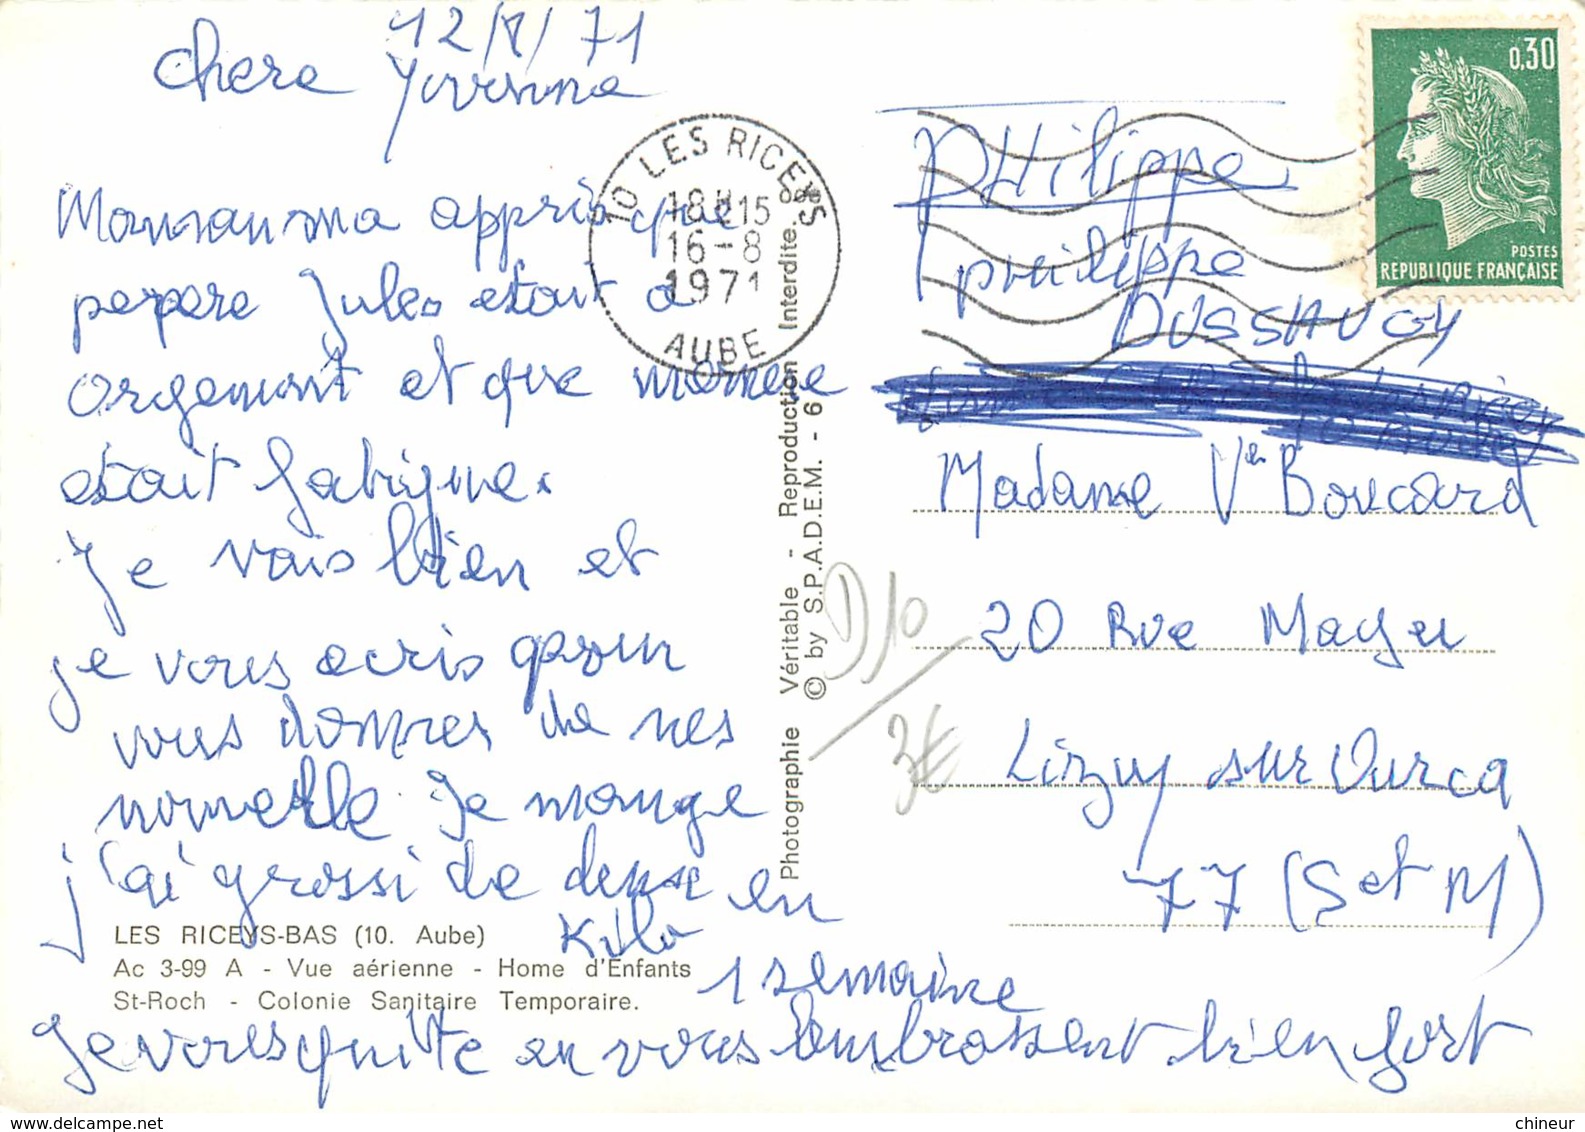 12/8/71
chere Yvonne
Maman ma appris que
pepere Jules etait a
orgemont et que memere
etait fatigue.
Je vais bien et
je vous ecris pour
vous donner de mes
nouvelle Je mange
j'ai grossi de deux en
Kilo
1 semaine
Je vous quitte en vous embrassent bien fort
LES RICEYS-BAS (10. Aube)
Ac 3-99 A - Vue aérienne - Home d'Enfants
St-Roch - Colonie Sanitaire Temporaire.
10 LES RICEYS
18H15
16-8
1971
AUBE
Photographie Véritable - Reproduction Interdite.
© by S.P.A.D.E.M. - 6
D10
3€
0,30
POSTES
REPUBLIQUE FRANÇAISE
PHilippe
philippe
DUSSAUGY
Madame Ve Boucard
20 Rue Mager
Lizy sur Ourcq
77 (S et M)
chineur